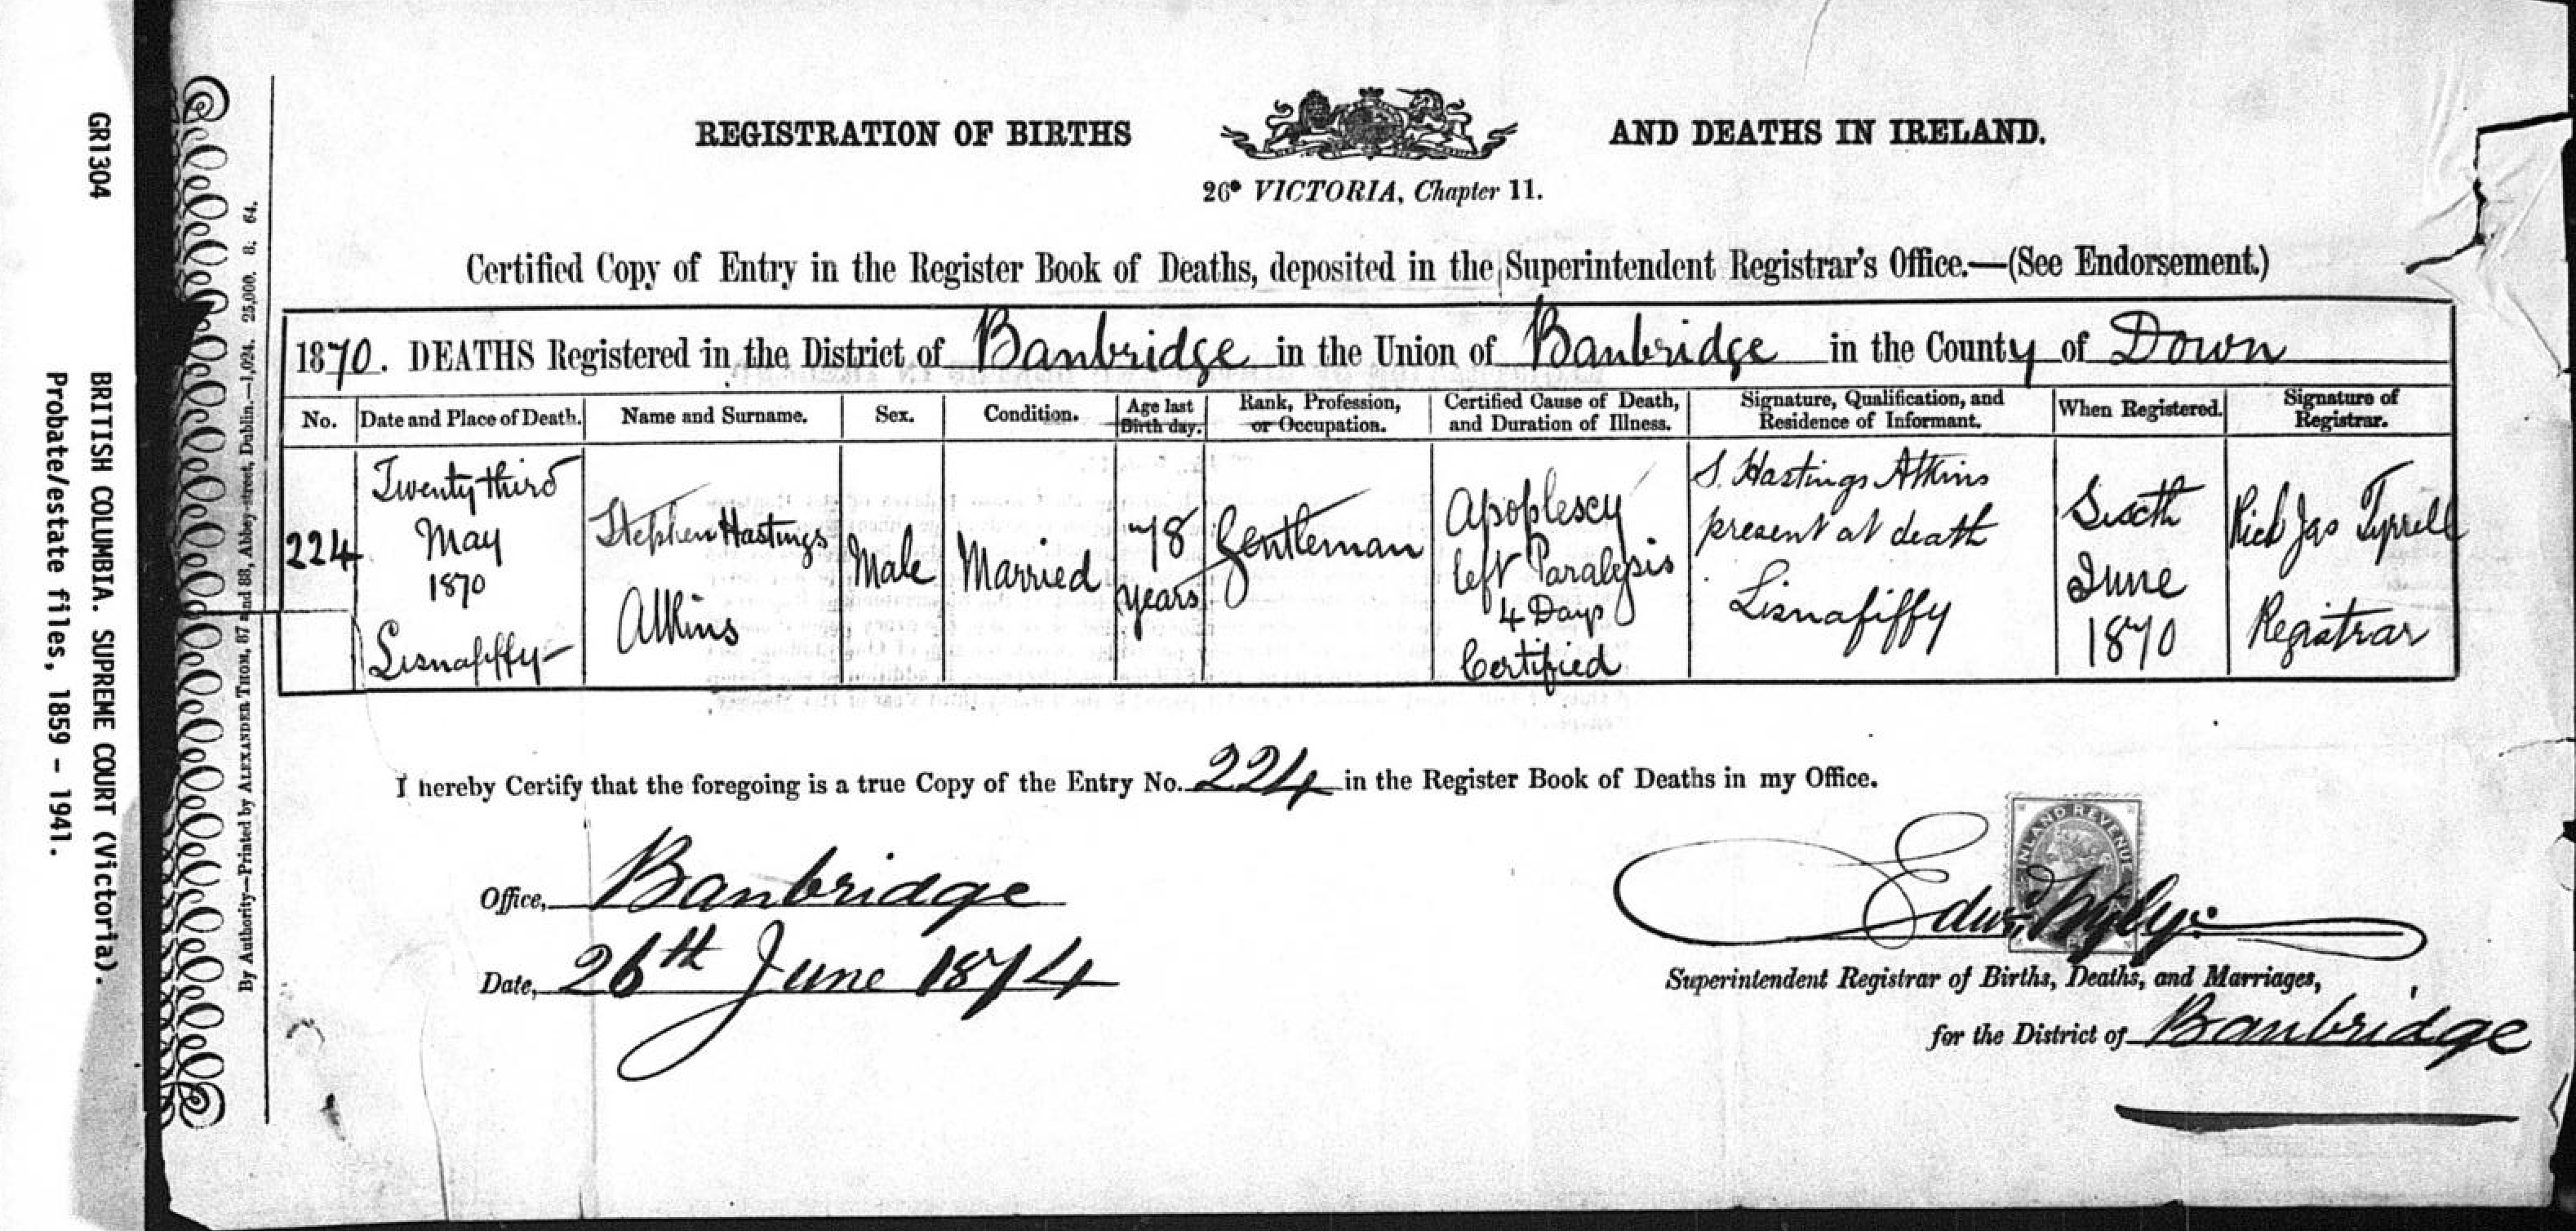 GR1304 BRITISH COLUMBIA. SUPREME COURT (Victoria).
Probate/estate files, 1859 - 1941.
By Authority—Printed by ALEXANDER THOM, 87 and 88, Abbey-street, Dublin.—1,024. 25,000. 8. 64.
REGISTRATION OF BIRTHS AND DEATHS IN IRELAND.
26° VICTORIA, Chapter 11.
Certified Copy of Entry in the Register Book of Deaths, deposited in the Superintendent Registrar's Office.—(See Endorsement.)
1870. DEATHS Registered in the District of Banbridge in the Union of Banbridge in the County of Down
No.
Date and Place of Death.
Name and Surname.
Sex.
Condition.
Age last
Birth day.
Rank, Profession,
or Occupation.
Certified Cause of Death,
and Duration of Illness.
Signature, Qualification, and
Residence of Informant.
When Registered.
Signature of
Registrar.
224
Twenty third
May
1870
Lisnafiffy
Stephen Hastings
Atkins
Male
Married
78
years
Gentleman
Apoplexy
left Paralysis
4 Days
Certified
S. Hastings Atkins
present at death
Lisnafiffy
Sixth
June
1870
Rich Jas Tyrrell
Registrar
I hereby Certify that the foregoing is a true Copy of the Entry No. 224 in the Register Book of Deaths in my Office.
INLAND REVENUE
Office, Banbridge
Edwd. Wyly
Date, 26th June 1874
Superintendent Registrar of Births, Deaths, and Marriages,
for the District of Banbridge